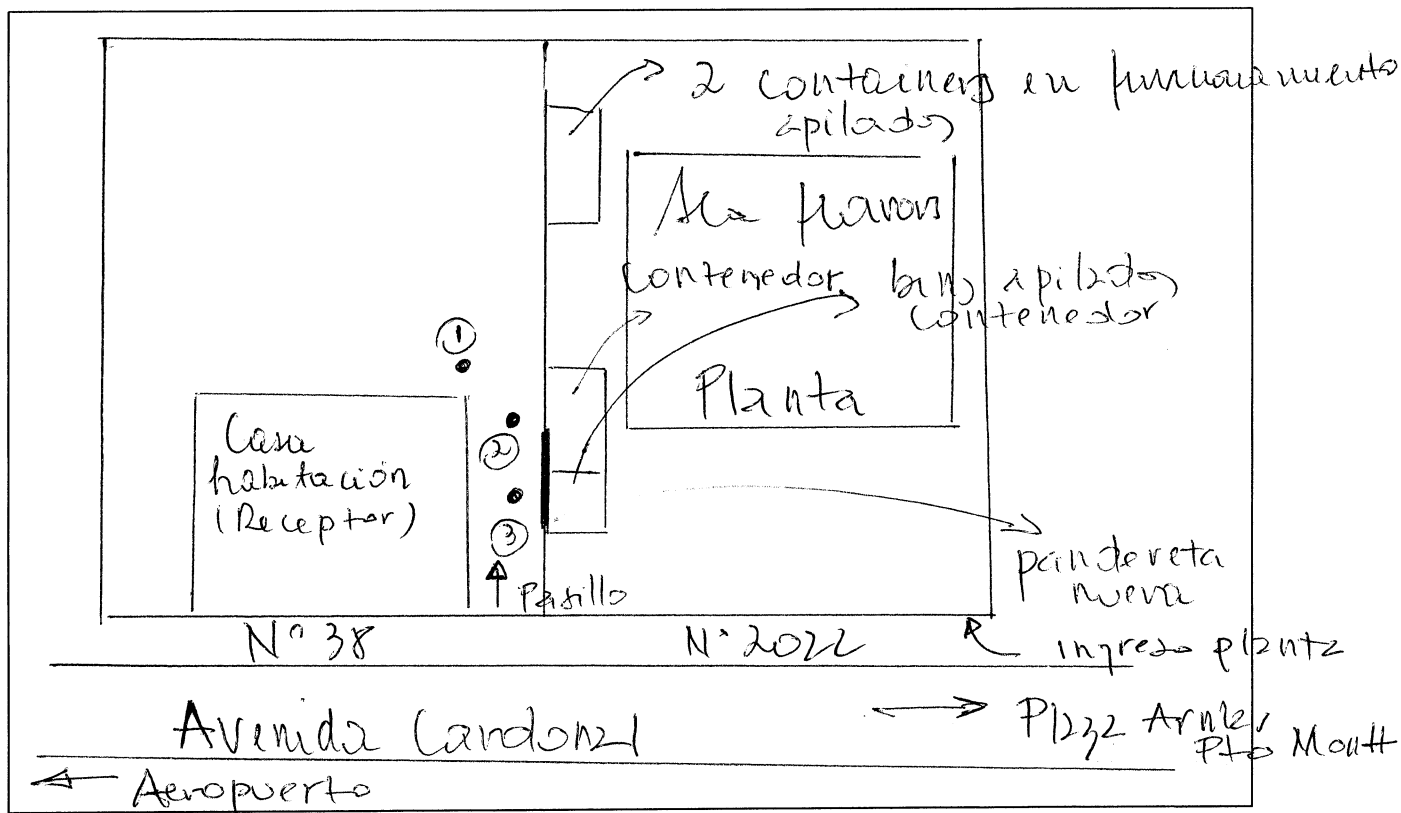 2 containers en funcionamiento
apilados
contenedor
bins apilados
contenedor
Planta
①
②
③
Casa
habitación
(Receptor)
Pasillo
pandereta
nueva
N° 38
N° 2022
ingreso planta
Avenida Cardonal
Plaza Armas
Pto Montt
Aeropuerto